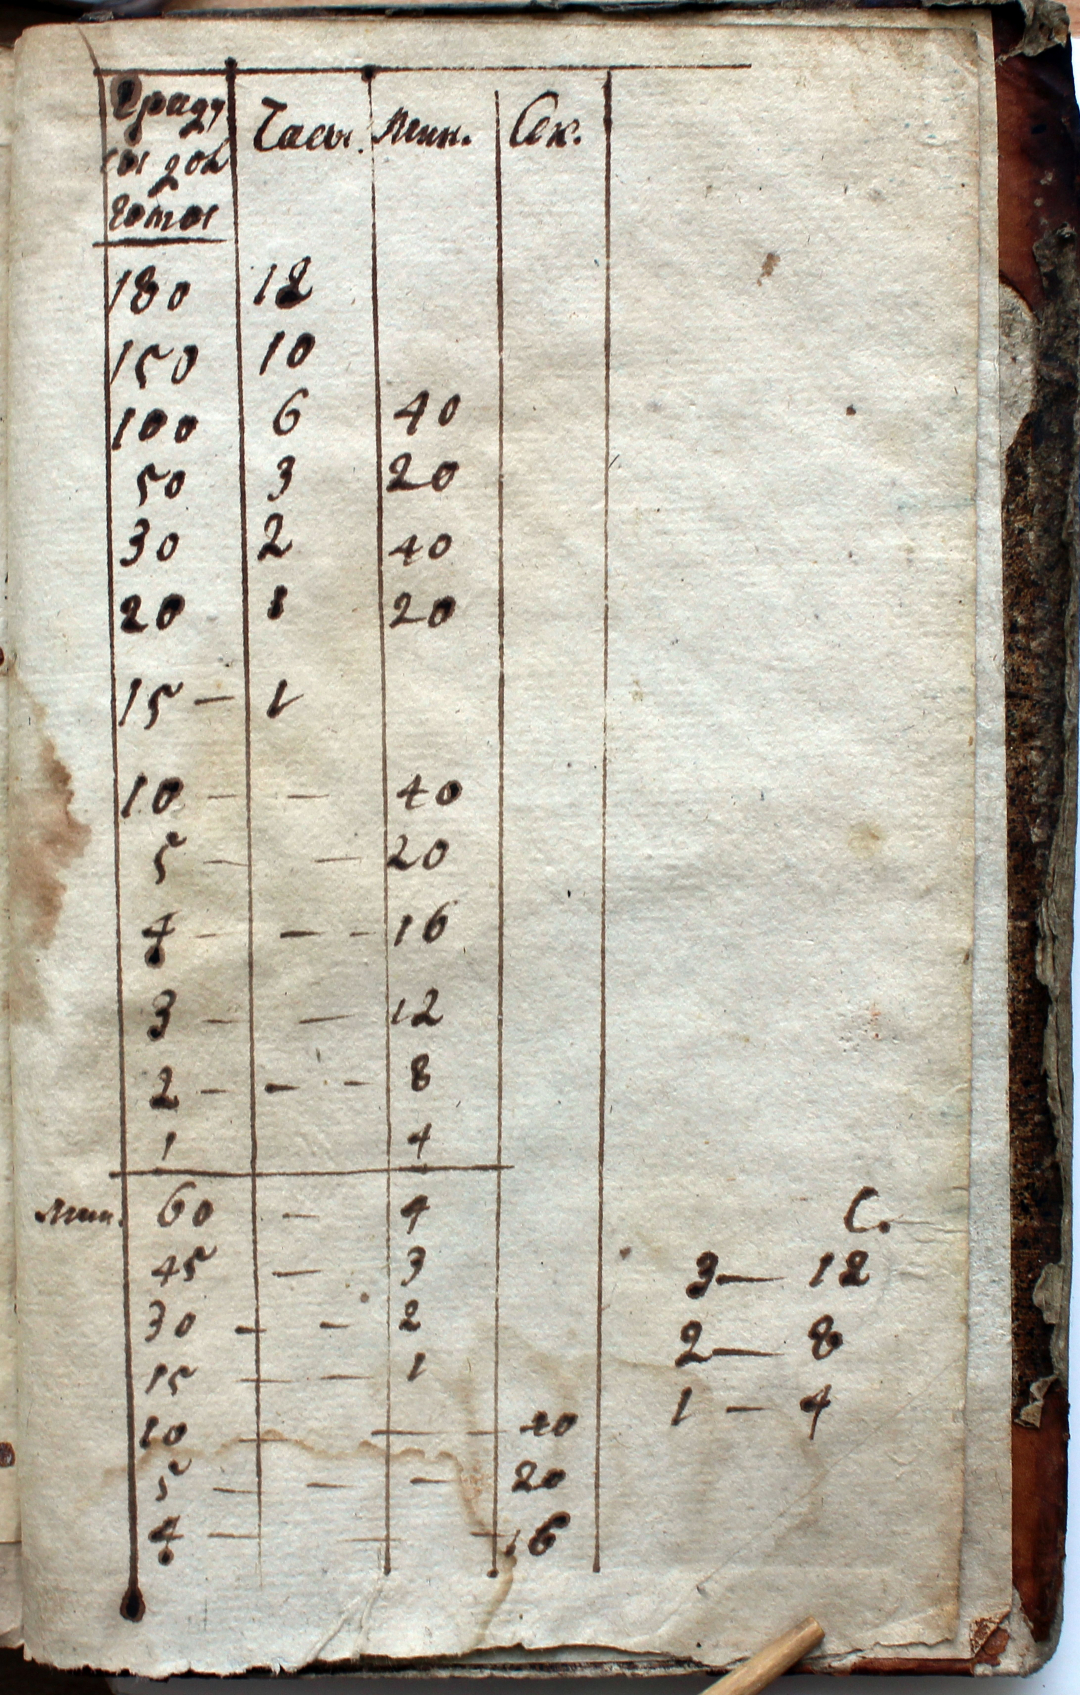 Граду Часы. Мин. Сек.
сы дол
готы
180 12
150 10
100 6 40
50 3 20
30 2 40
20 1 20
15 — 1
10 — — 40
5 — — 20
4 — — - 16
3 — — 12
2 — - — 8
1 4
Мин. 60 — 4
45 — 3
30 — — 2
15 — — 1
10 — — — 40
5 — — — 20
4 — — — 16
С.
3 — 12
2 — 8
1 — 4